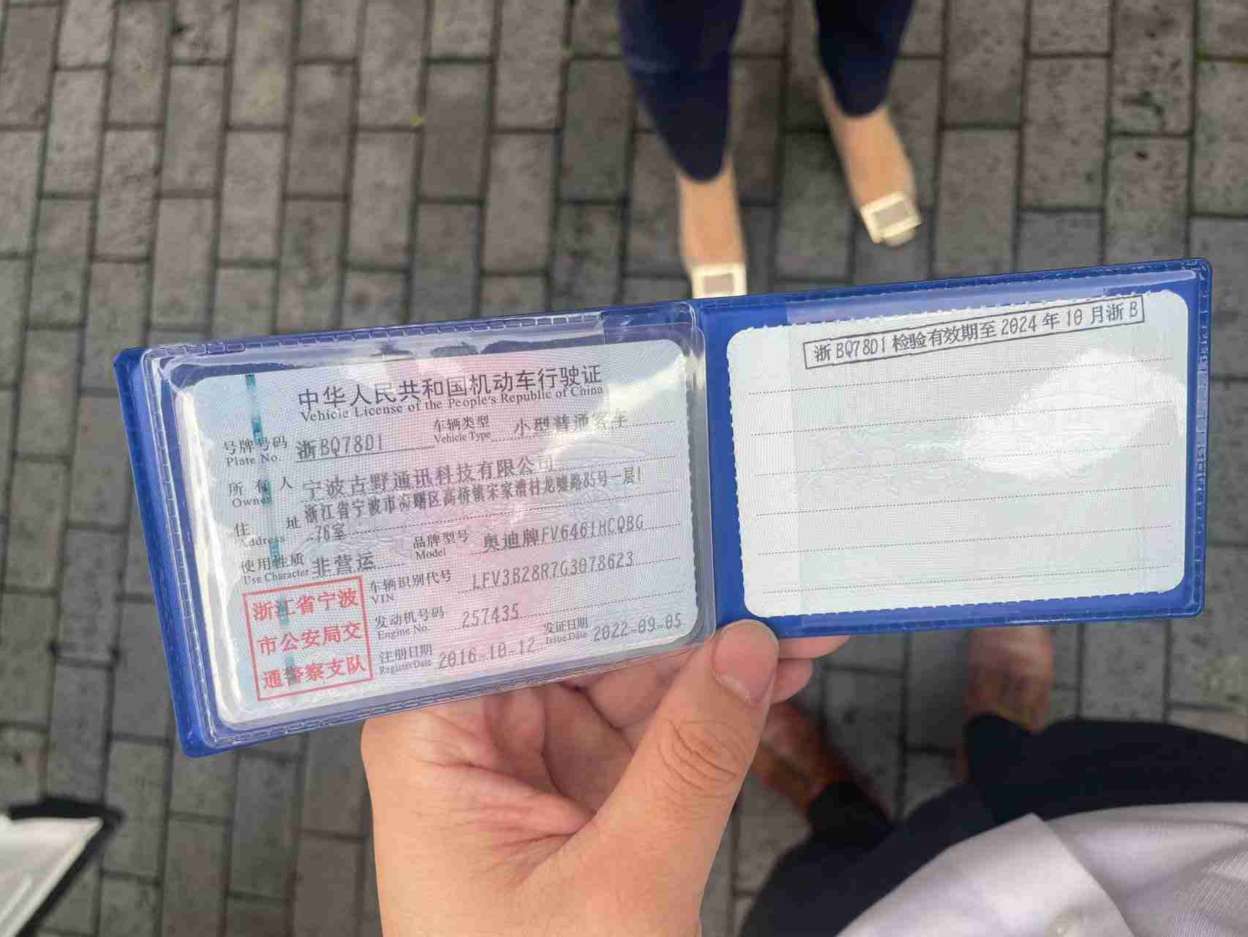 中华人民共和国机动车行驶证
Vehicle License of the People's Republic of China
号牌号码 浙BQ78D1 车辆类型 小型普通客车
Plate No. Vehicle Type
所有人 宁波古野通讯科技有限公司
Owner
住址 浙江省宁波市海曙区高桥镇宋家漕村龙嘘路85号一层1
Address -76室
使用性质 非营运 品牌型号 奥迪牌FV6461HCQBG
Use Character Model
车辆识别代号 LFV3B28R7G3078623
VIN
发动机号码 257435
Engine No.
注册日期 2016-10-12 发证日期 2022-09-05
Register Date Issue Date
浙江省宁波
市公安局交
通警察支队
浙BQ78D1检验有效期至2024年10月浙B